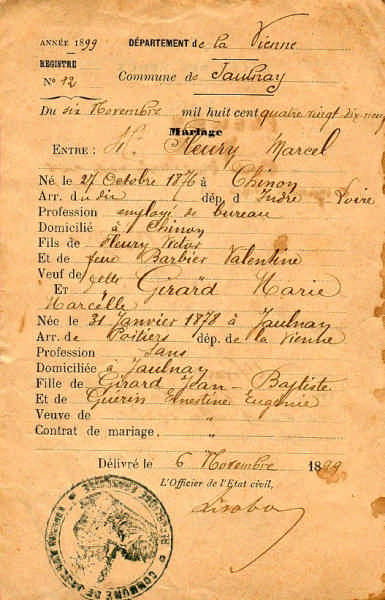 ANNÉE 1899 DÉPARTEMENT de la Vienne
REGISTRE
N° 12 Commune de Jaulnay
Du six Novembre mil huit cent quatre vingt dix-neuf
Mariage
ENTRE : Mr. Fleury Marcel
Né le 27 Octobre 1876 à Chinon
Arr. du dép. d'Indre Loire
Profession employé de bureau
Domicilié à Chinon
Fils de Fleury Victor
Et de feue Barbier Valentine
Veuf de
ET Girard Marie
Marcelle
Née le 31 Janvier 1878 à Jaulnay
Arr. de Poitiers dép. de la Vienne
Profession sans
Domiciliée à Jaulnay
Fille de Girard Jean-Baptiste
Et de Guérin Ernestine Eugénie
Veuve de "
Contrat de mariage. "
Délivré le 6 Novembre 1899
L'Officier de l'Etat civil,
COMMUNE DE